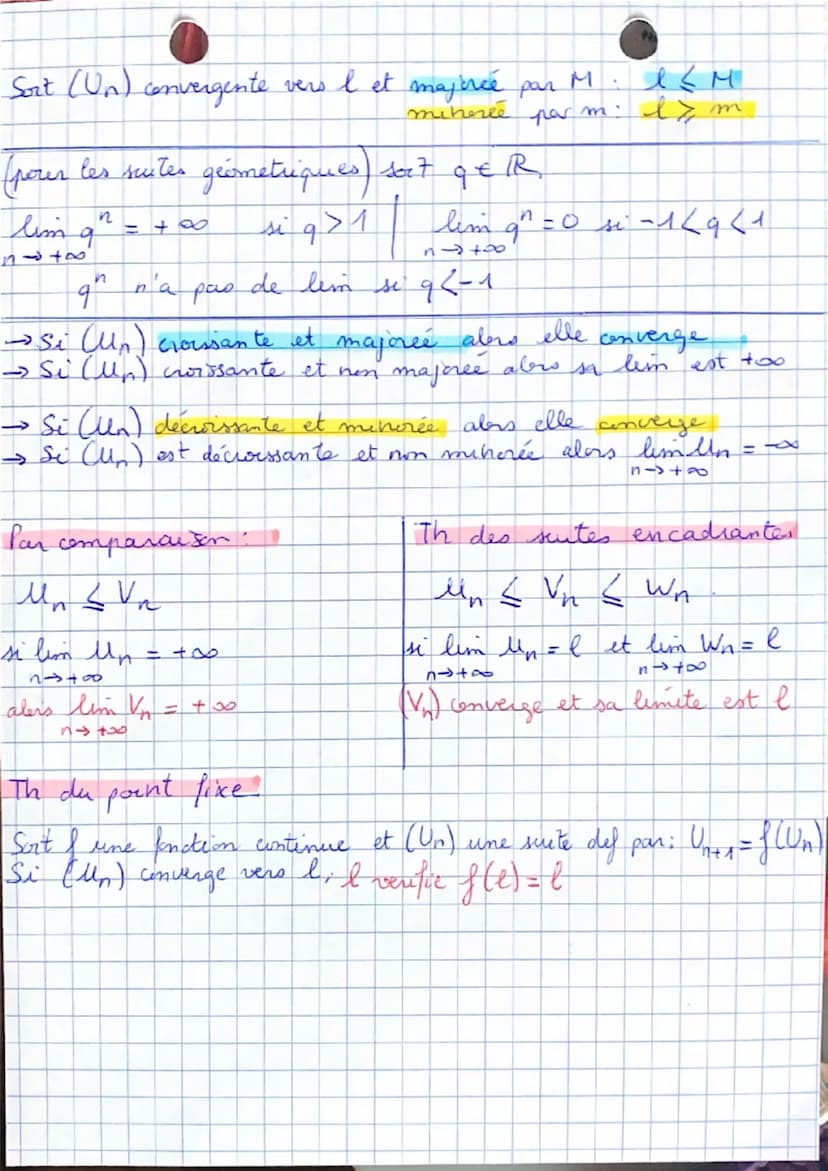 Soit (Un) convergente vers l et majorée par M : l ⩽ M
minorée par m : l ⩾ m
(pour les suites géométriques) soit q ∈ ℝ
lim qⁿ = +∞ si q > 1 | lim qⁿ = 0 si -1 < q < 1
n→+∞ n→+∞
qⁿ n'a pas de lim si q < -1
→ Si (Un) croissante et majorée alors elle converge
→ Si (Un) croissante et non majorée alors sa lim est +∞
→ Si (Un) décroissante et minorée alors elle converge
→ Si (Un) est décroissante et non minorée alors lim Un = -∞
n→+∞
Par comparaison :
Un ⩽ Vn
si lim Un = +∞
n→+∞
alors lim Vn = +∞
n→+∞
Th des suites encadrantes
Un ⩽ Vn ⩽ Wn
si lim Un = l et lim Wn = l
n→+∞ n→+∞
(Vn) converge et sa limite est l
Th du point fixe
Soit f une fonction continue et (Un) une suite def par : Un+1 = f(Un)
Si (Un) converge vers l, l verifie f(l) = l